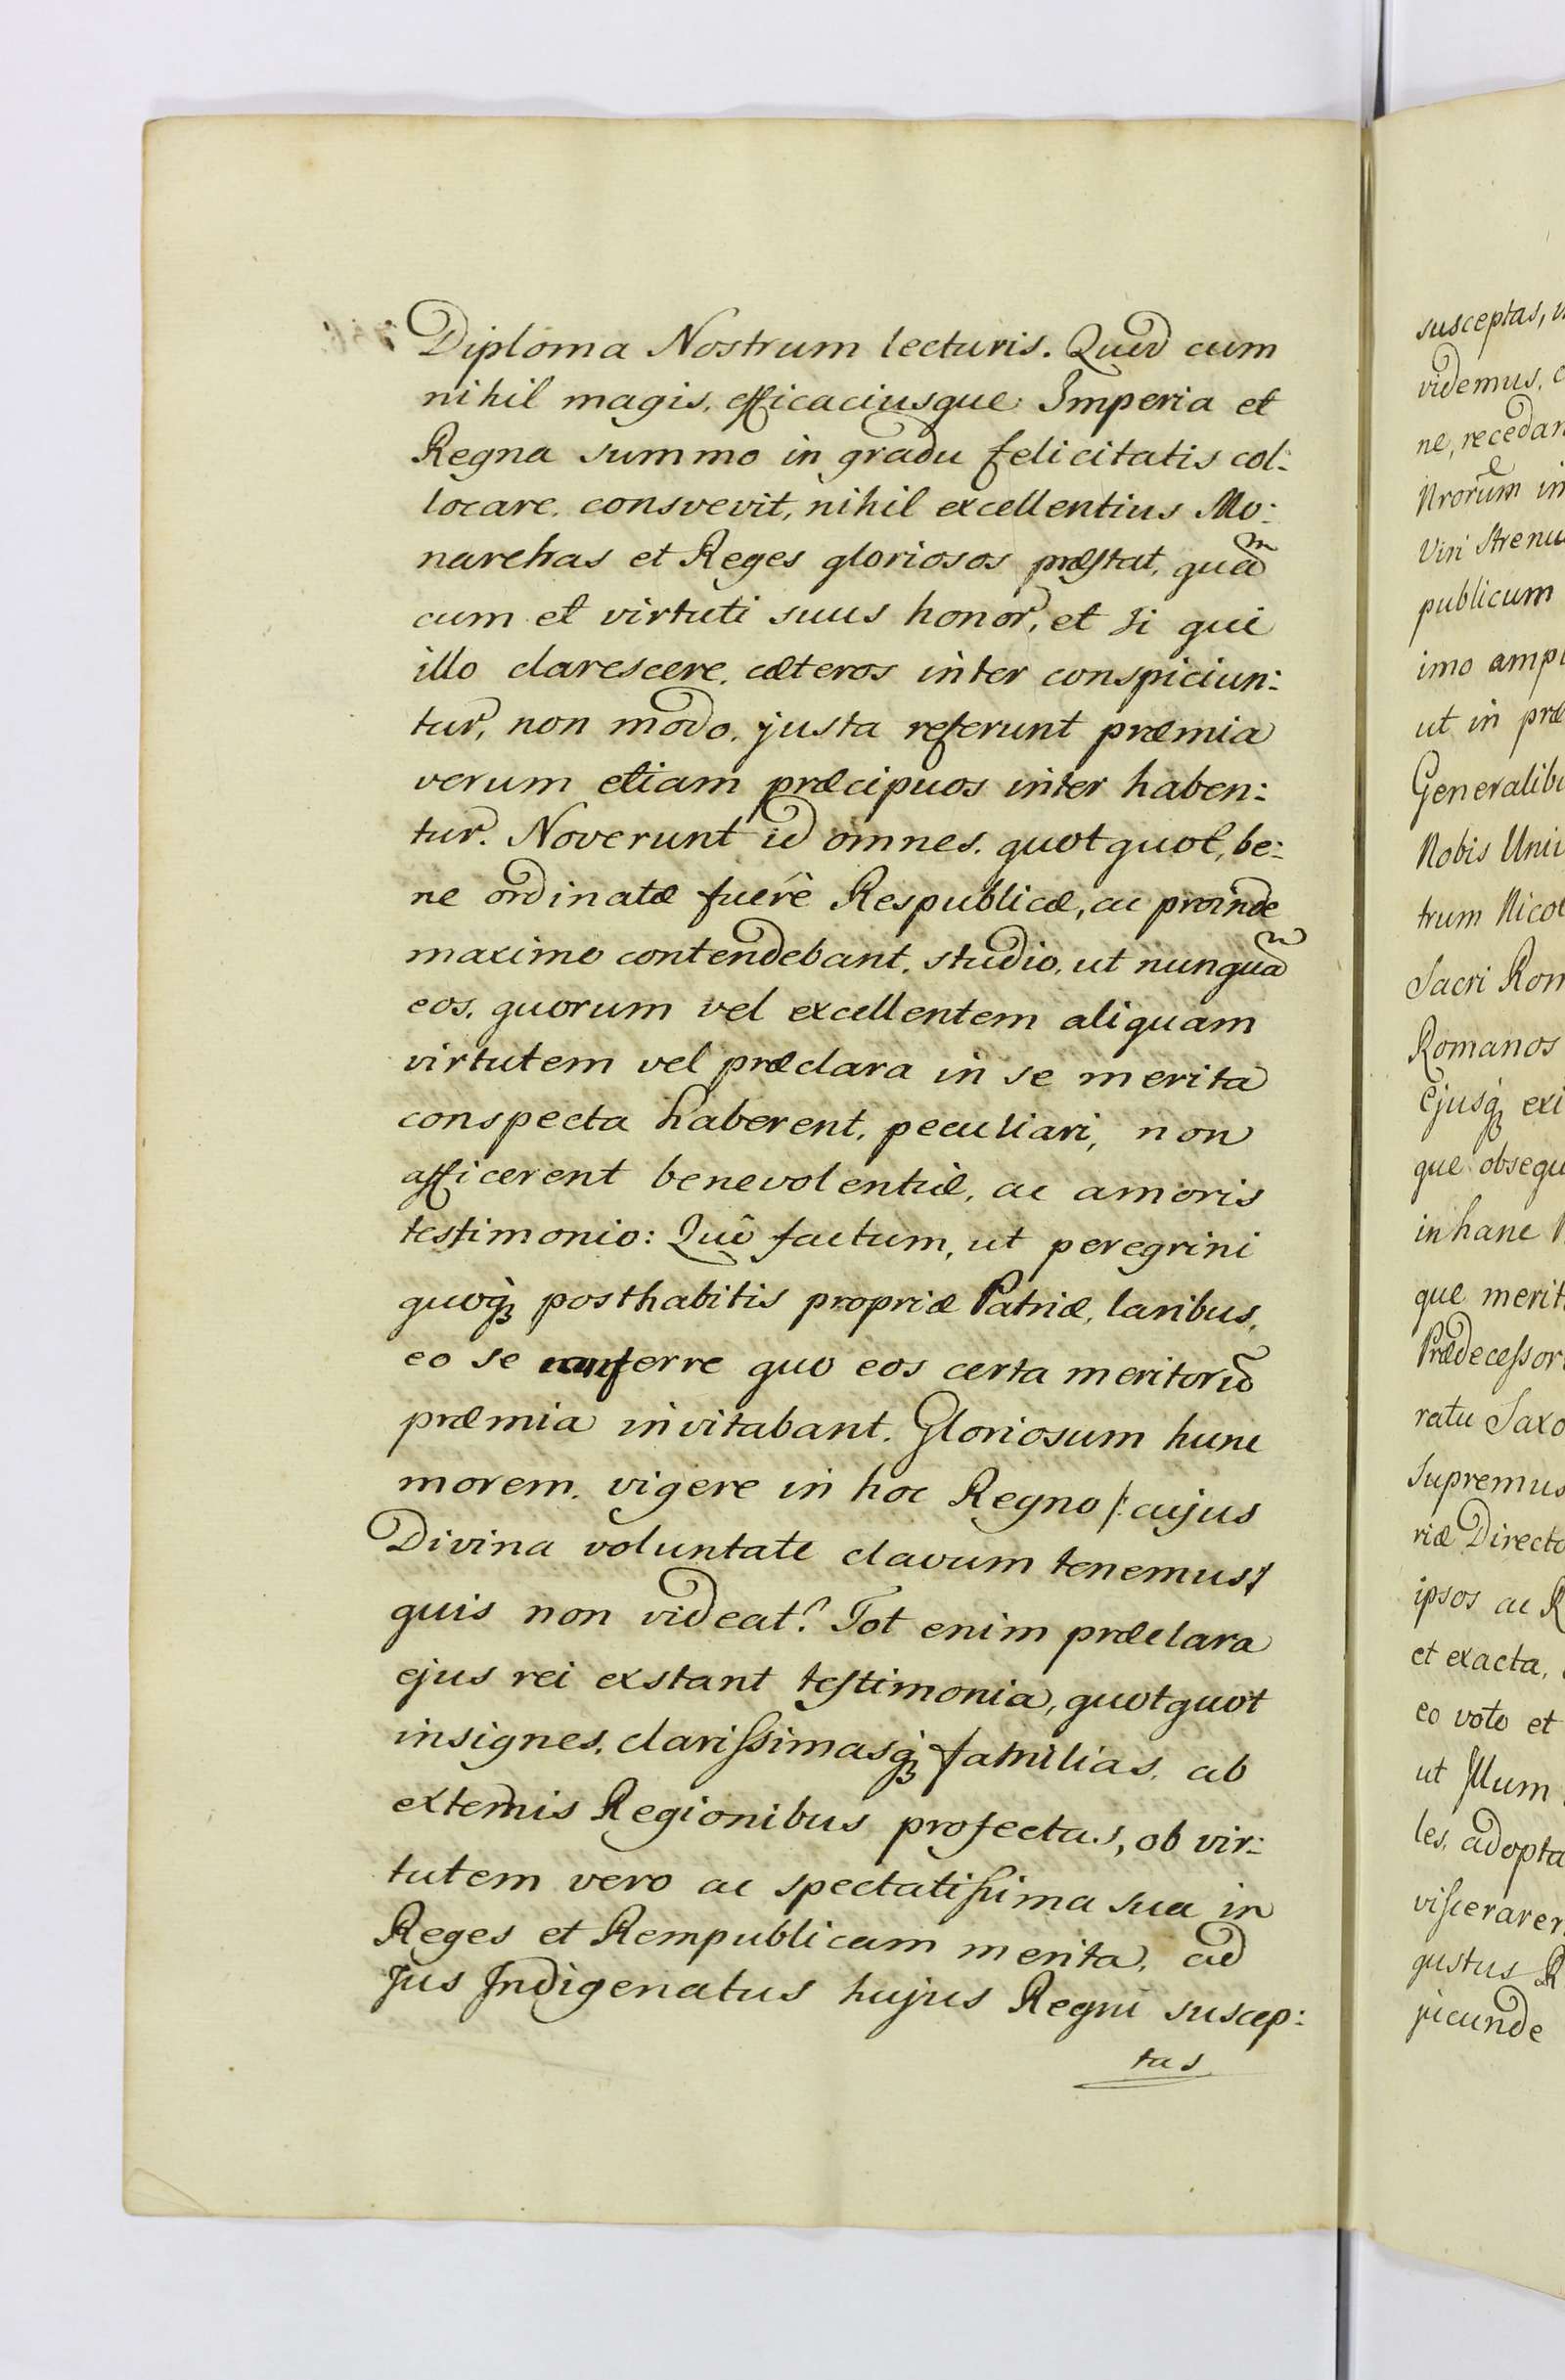 Diploma Nostrum lecturis. Quod cum
nihil magis, efficaciusque Imperia et
Regna summo in gradu felicitatis col:
locare consvevit, nihil excellentius Mo:
narchas et Reges gloriosos præstat, quam
cum et virtuti suus honor, et si qui
illo clarescere, cæteros inter conspiciun:
tur, non modo justa referunt præmia
verum etiam præcipuos inter haben:
tur. Noverunt id omnes, quotquot, be:
ne ordinatæ fuerê Respublicæ, ac proinde
maximo contendebant, studio, ut nunquam
eos, quorum vel excellentem aliquam
virtutem vel præclara in se merita
conspecta haberent, peculiari, non
afficerent benevolentiæ, ac amoris
testimonio: Quô factum, ut peregrini
quoqȝ posthabitis propriæ Patriæ, laribus,
eo se conferre quo eos certa meritorũ
præmia invitabant. Gloriosum hunc
morem, vigere in hoc Regno /: cujus
Divina voluntate clavum tenemus :/
quis non videat? Tot enim præclara
ejus rei exstant testimonia, quotquot
insignes, clarissimasqȝ familias, ab
externis Regionibus profectas, ob vir:
tutem vero ac spectatissima sua in
Reges et Rempublicam merita, ad
Jus Indigenatus hujus Regni suscep:
tas
susceptas,
videmus,
ne, recedan
Nrorum in
Viri Strenu
publicum
imo ampl
ut in præ
Generalibu
Nobis Uni
trum Nicol
Sacri Rom
Romanos
Ejusqȝ exi
que obsequ
in hanc
que merit
Prædecessor
ratu Saxo
Supremus
riæ Directo
ipsos ac R
et exacta,
eo voto et
ut Illum
les, adopta
viscerarer
gustus R
jucunde